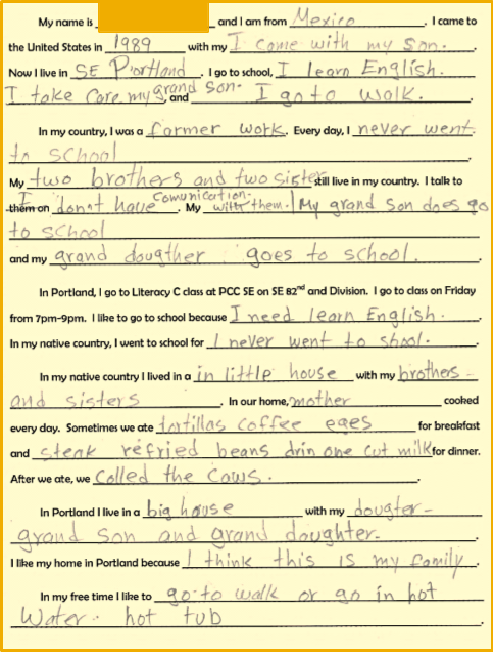 My name is and I am from Mexico. I came to
the United States in 1989 with my I come with my son.
Now I live in SE Portland. I go to school, I learn English.
I take care my grand son. and I go to walk.
In my country, I was a farmer work. Every day, I never went
to school.
My two brothers and two sister still live in my country. I talk to
them on I donn't have comunication. My with them. My grand son does go
to school
and my grand dougther goes to school.
In Portland, I go to Literacy C class at PCC SE on SE 82nd and Division. I go to class on Friday
from 7pm-9pm. I like to go to school because I need learn English.
In my native country, I went to school for I never went to shool.
In my native country I lived in a in little house with my brothers
and sisters. In our home, mother cooked
every day. Sometimes we ate tortillas coffee eges for breakfast
and steak refried beans drin one cut milk for dinner.
After we ate, we called the cows.
In Portland I live in a big house with my dougter
grand son and grand doughter.
I like my home in Portland because I think this is my family.
In my free time I like to go to walk or go in hot
Water. hot tub